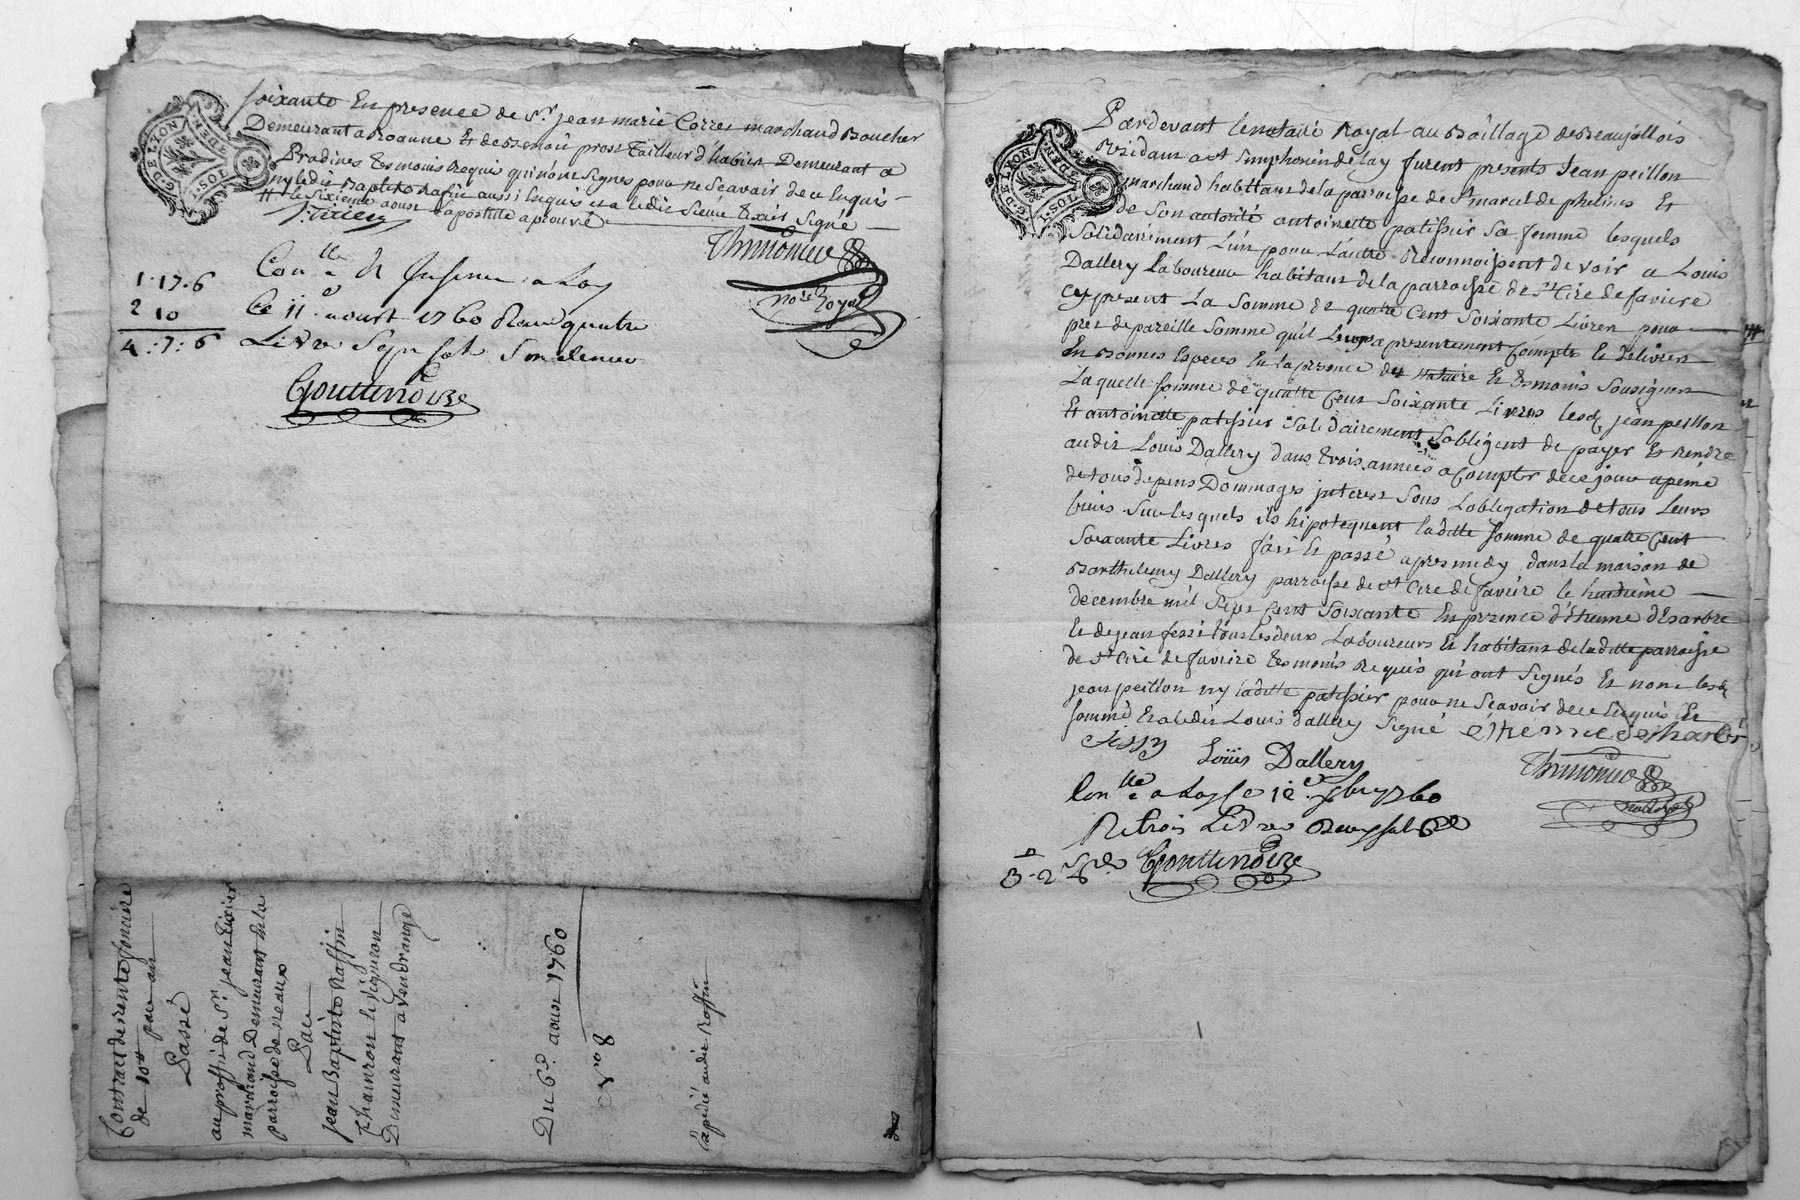 G. DE LYON
2. SDEN.
1. SOL
soixante En presence de Sr. jean marie Corres marchand Boucher
Demeurant a Roanne Et de Benoit pros Tailleur d'habits Demeurant a
Pradines temoins Requis qui n'ont Signes pour ne Scavoir de ce Enquis
ny ledit Baptiste Raffin aussi Enquis
le Sixieme aoust apostille aprouvé
Thimonier
nore Royal
1.17.6
2 10
4:7:6
Conlle
Ce 11e aoust 1760 Quatre
Livre Sept
Gouttenoire
Contract de rente fonciere
de 10# par an
Passé
au proffit de Sr. jean Tixier
marchand Demeurant En la
parroisse de neaux
Par
jean Baptiste Raffin
Chamron le Vigneron
Demeurant a Vendrange
Du 6e aoust 1760
No 8
Expedié audit Raffin
G. DE LYON
2. SDEN
1. SOL
Pardevant le notaire Royal au Baillage de Beaujollois
Residant a St Simphorien de lay furent presents Jean peillon
marchand habitant de la parroisse de St marcel de phelines Et
de Son autorité antoinette patissier Sa femme lesquels
Solidairement L'un pour L'autre Reconnoissent devoir a Louis
Dallery Laboureur habitant de la parroisse de St Cire de faviere
cy present La Somme de quatre Cent Soixante Livres pour
pres de pareille Somme qu'il Leurs a presentement Compté Et delivré
En Bonnes Especes En la presence des Notaire Et temoins Sousignes
Laquelle somme de quatre Cent Soixante Livres lesd. jean peillon
Et antoinette patissier Solidairement S'obligent de payer Et Rendre
audit Louis Dallery dans trois années a Compter de ce jour a peine
de tous depens Dommages interest Sous L'obligation de tous Leurs
biens Sur lesquels ils hipotequent laditte Somme de quatre Cent
Soixante Livres fait Et passé apres midy dans la maison de
Barthelemy Dallery parroisse de St Cire de faviere le huitieme
decembre mil Sept Cent Soixante En presence d'Etienne d'Esarbre
Et de jean fessi tous les deux Laboureurs Et habitans de laditte parroisse
de St Cire de faviere temoins Requis qui ont Signés Et non lesd.
jean peillon ny laditte patissier pour ne Scavoir de ce Enquis Et
sommé Et a ledit Louis dallery Signé Etienne desharbr
fessy
Louis Dallery
Thimonier
no Royal
Conlle a Lay le 12e xbre 1760
R trois Livres deux sols
3-2
Gouttenoire